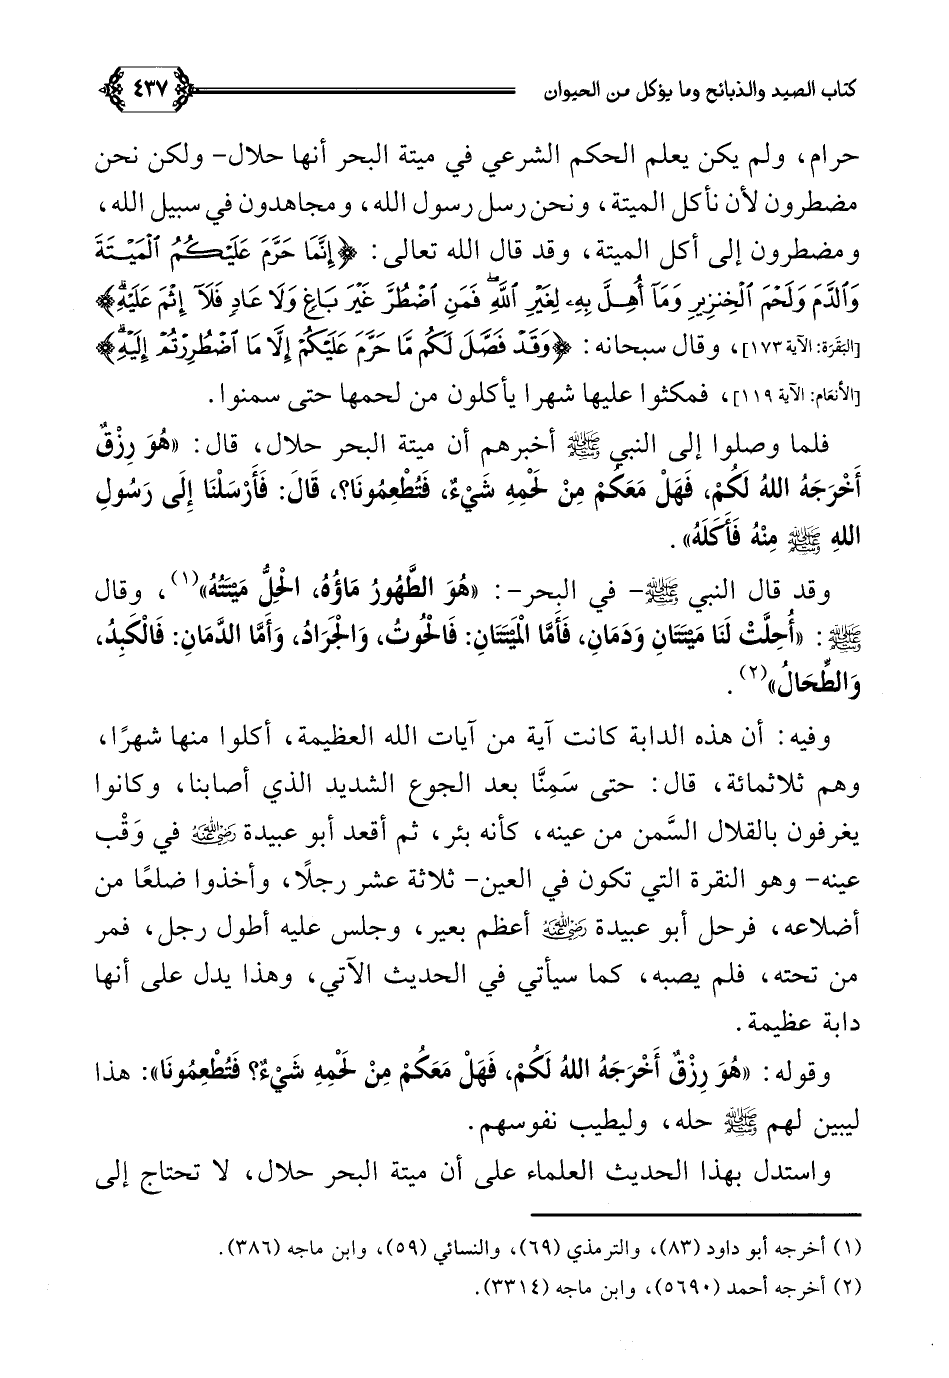 كتاب الصيد والذبائح وما يؤكل من الحيوان ٤٣٧
حرام، ولم يكن يعلم الحكم الشرعي في ميتة البحر أنها حلال- ولكن نحن
مضطرون لأن نأكل الميتة، ونحن رسل رسول الله، ومجاهدون في سبيل الله،
ومضطرون إلى أكل الميتة، وقد قال الله تعالى: ﴿إِنَّمَا حَرَّمَ عَلَيْكُمُ ٱلْمَيْتَةَ
وَٱلدَّمَ وَلَحْمَ ٱلْخِنزِيرِ وَمَآ أُهِلَّ بِهِۦ لِغَيْرِ ٱللَّهِۖ فَمَنِ ٱضْطُرَّ غَيْرَ بَاغٍ وَلَا عَادٍ فَلَآ إِثْمَ عَلَيْهِۚ﴾
[البَقَرَة: الآية ١٧٣]، وقال سبحانه: ﴿وَقَدْ فَصَّلَ لَكُم مَّا حَرَّمَ عَلَيْكُمْ إِلَّا مَا ٱضْطُرِرْتُمْ إِلَيْهِۗ﴾
[الأنعَام: الآية ١١٩]، فمكثوا عليها شهرا يأكلون من لحمها حتى سمنوا.
فلما وصلوا إلى النبي ﷺ أخبرهم أن ميتة البحر حلال، قال: «هُوَ رِزْقٌ
أَخْرَجَهُ اللهُ لَكُمْ، فَهَلْ مَعَكُمْ مِنْ لَحْمِهِ شَيْءٌ، فَتُطْعِمُونَا؟، قَالَ: فَأَرْسَلْنَا إِلَى رَسُولِ
اللهِ ﷺ مِنْهُ فَأَكَلَهُ».
وقد قال النبي ﷺ- في البحر-: «هُوَ الطَّهُورُ مَاؤُهُ، الْحِلُّ مَيْتَتُهُ»(١)، وقال
ﷺ: «أُحِلَّتْ لَنَا مَيْتَتَانِ وَدَمَانِ، فَأَمَّا الْمَيْتَتَانِ: فَالْحُوتُ، وَالْجَرَادُ، وَأَمَّا الدَّمَانِ: فَالْكَبِدُ،
وَالطِّحَالُ»(٢).
وفيه: أن هذه الدابة كانت آية من آيات الله العظيمة، أكلوا منها شهرًا،
وهم ثلاثمائة، قال: حتى سَمِنَّا بعد الجوع الشديد الذي أصابنا، وكانوا
يغرفون بالقلال السَّمن من عينه، كأنه بئر، ثم أقعد أبو عبيدة رضي الله عنه في وَقْب
عينه- وهو النقرة التي تكون في العين- ثلاثة عشر رجلًا، وأخذوا ضلعًا من
أضلاعه، فرحل أبو عبيدة رضي الله عنه أعظم بعير، وجلس عليه أطول رجل، فمر
من تحته، فلم يصبه، كما سيأتي في الحديث الآتي، وهذا يدل على أنها
دابة عظيمة.
وقوله: «هُوَ رِزْقٌ أَخْرَجَهُ اللهُ لَكُمْ، فَهَلْ مَعَكُمْ مِنْ لَحْمِهِ شَيْءٌ؟ فَتُطْعِمُونَا»: هذا
ليبين لهم ﷺ حله، وليطيب نفوسهم.
واستدل بهذا الحديث العلماء على أن ميتة البحر حلال، لا تحتاج إلى
(١) أخرجه أبو داود (٨٣)، والترمذي (٦٩)، والنسائي (٥٩)، وابن ماجه (٣٨٦).
(٢) أخرجه أحمد (٥٦٩٠)، وابن ماجه (٣٣١٤).